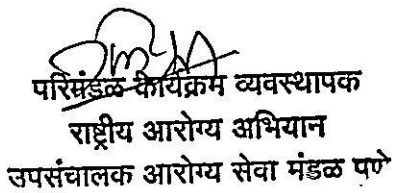 परिमंडळ कार्यक्रम व्यवस्थापक
राष्ट्रीय आरोग्य अभियान
उपसंचालक आरोग्य सेवा मंडळ पणे